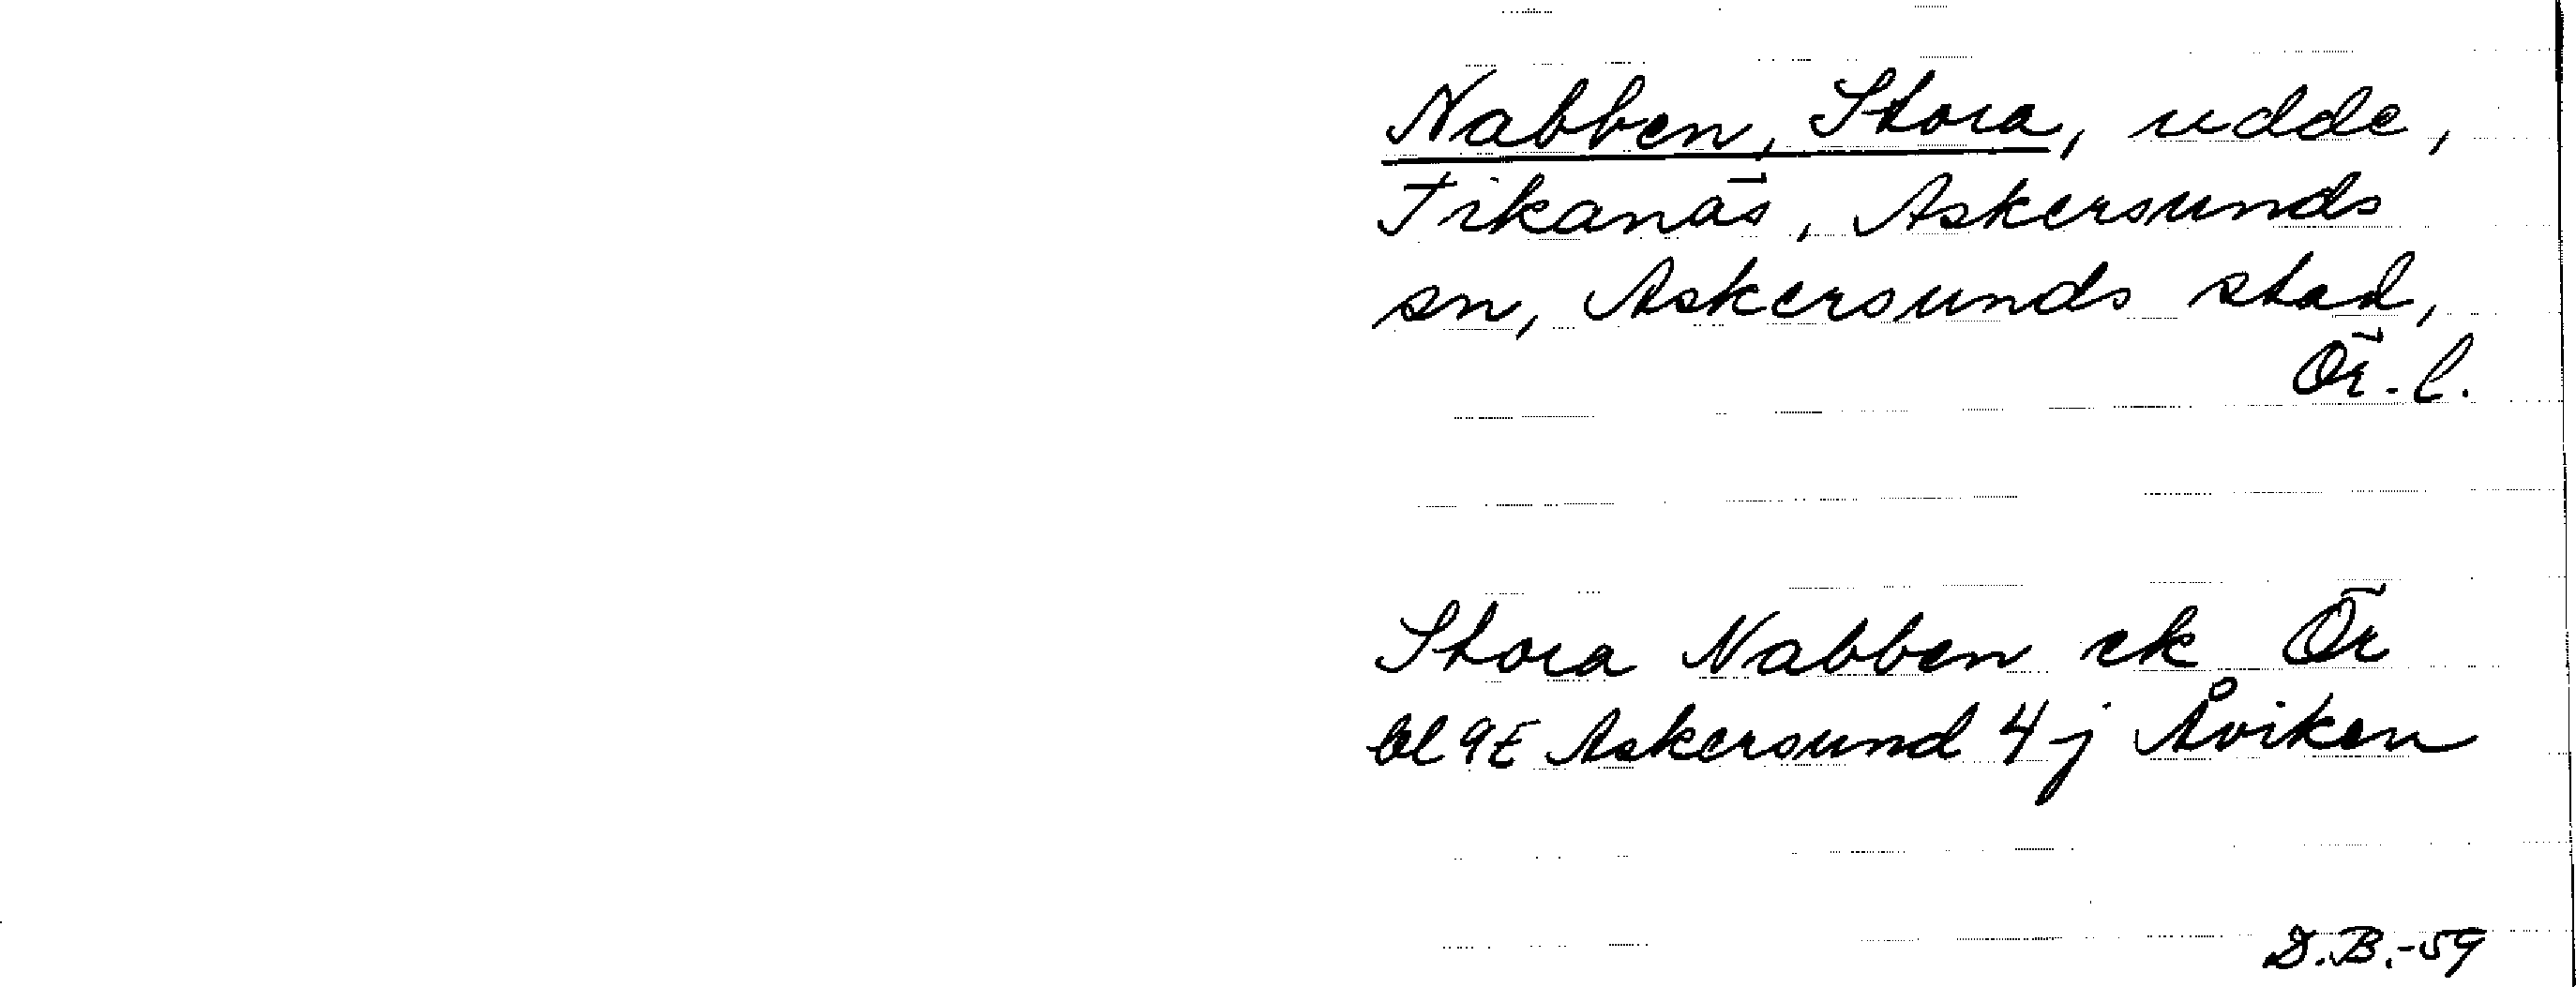 Nabben, Stora, udde,
Tikanäs, Askersunds
sn, Askersunds stad,
Ör. l.
Stora Nabben ek Ör
bl 9E Askersund 4 j Åviken
D.B.-59